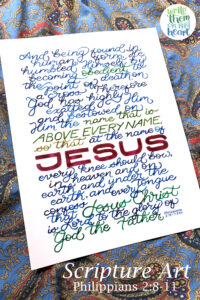 write
them
on my
heart
And being found in
human form, He
humbled Himself by
becoming obedient
the point of death on
cross. Therefore
God has highly
exalted Him
and bestowed on Him
the name that is
ABOVE EVERY NAME,
so that at the name of
JESUS
every knee should bow,
in heaven and on
earth and under the
earth, and every tongue
confess that
Jesus Christ
is Lord to the glory of
God the Father
Scripture Art
Philippians 2:8-11